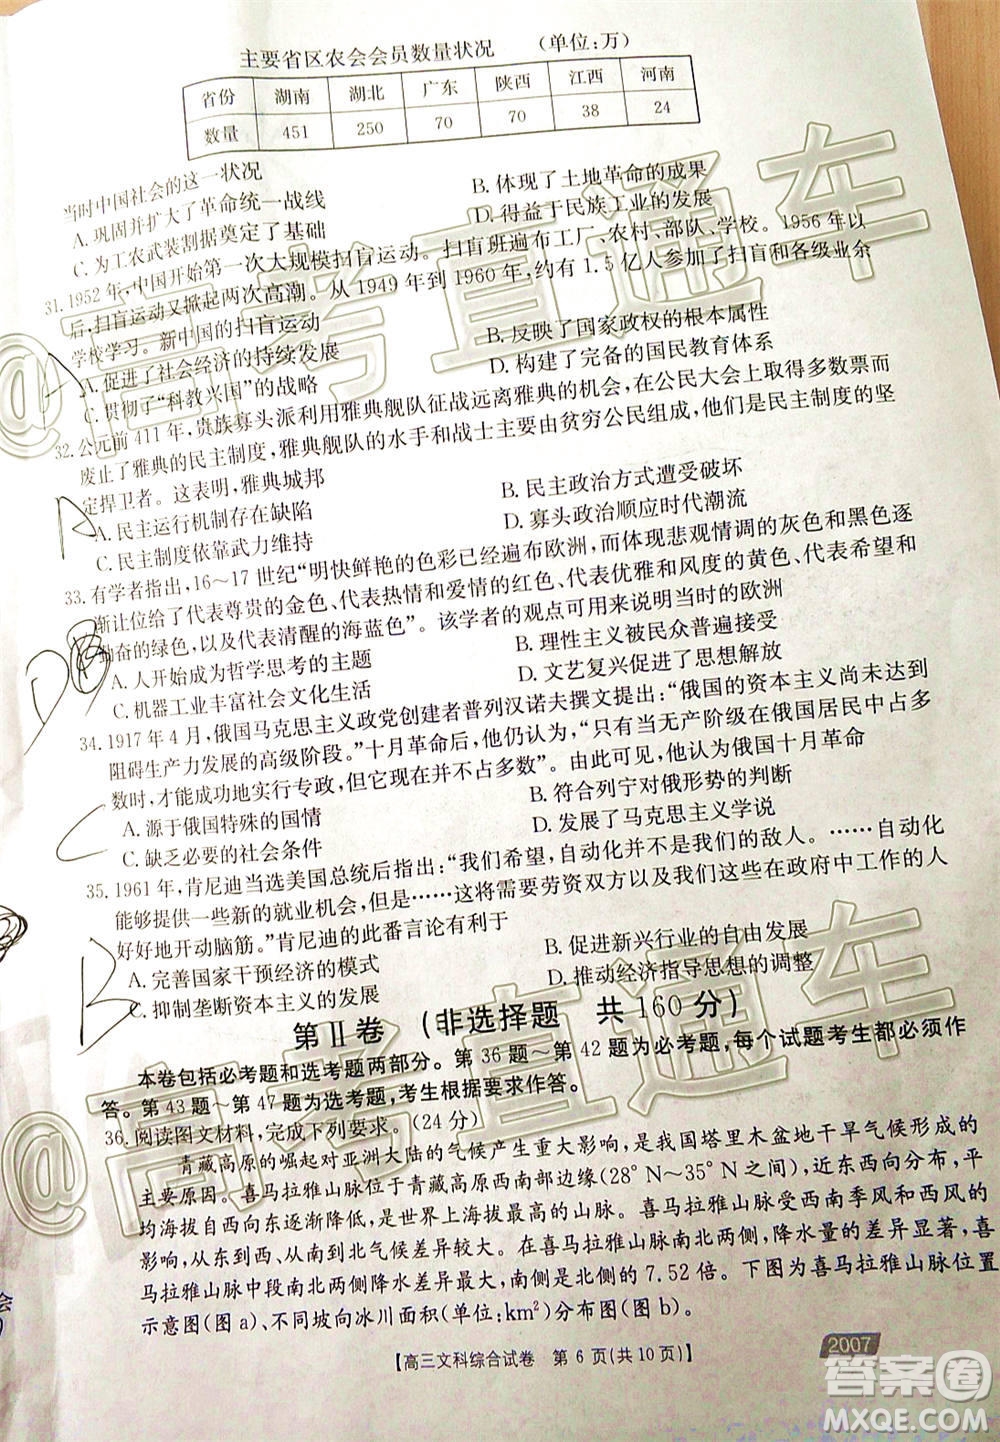 主要省区农会会员数量状况　（单位:万）
省份 湖南 湖北 广东 陕西 江西 河南
数量 451 250 70 70 38 24
当时中国社会的这一状况
A. 巩固并扩大了革命统一战线 B. 体现了土地革命的成果
C. 为工农武装割据奠定了基础 D. 得益于民族工业的发展
31. 1952 年,中国开始第一次大规模扫盲运动。扫盲班遍布工厂、农村、部队、学校。1956 年以
后,扫盲运动又掀起两次高潮。从 1949 年到 1960 年,有约 1.5 亿人参加了扫盲和各级业余
学校学习。新中国的扫盲运动
A. 促进了社会经济的持续发展 B. 反映了国家政权的根本属性
C. 贯彻了“科教兴国”的战略 D. 构建了完备的国民教育体系
32. 公元前 411 年,贵族寡头派利用雅典舰队征战远离雅典的机会,在公民大会上以多数票而
废止了雅典的民主制度,雅典舰队的水手和战士主要由贫苦公民组成,成为民主制度的坚
定捍卫者。这表明,雅典城邦
A. 民主运行机制存在缺陷 B. 民主政治方式遭受破坏
C. 民主制度依靠武力维持 D. 寡头政治顺应时代潮流
33. 有学者指出,16～17 世纪“明快鲜艳的色彩已经遍布欧洲,而体现悲观情调的灰色和黑色逐
渐让位给了代表尊贵的金色、代表热情和爱情的红色、代表优雅高贵的黄色、代表希望和
勤奋的绿色,以及代表清醒的海蓝色”。该学者的观点可用于说明当时的欧洲
A. 人开始成为哲学思考的主题 B. 理性主义被民众普遍接受
C. 机器工业丰富社会文化生活 D. 文艺复兴促进了思想解放
34. 1917 年 4 月,俄国马克思主义政党创建者普列汉诺夫撰文提出:“俄国的资本主义尚未达到
阻碍生产力发展的高级阶段。”十月革命后,他仍认为:“只有当无产阶级在俄国居民中占多
数时,才能成功地实行专政,但它现在并不占多数”。据此,他认为俄国十月革命
A. 源于俄国特殊的国情 B. 符合列宁对俄形势的判断
C. 缺乏必要的社会条件 D. 发展了马克思主义学说
35. 1961 年,肯尼迪当选美国总统后指出:“我们希望,自动化并不是我们的敌人。……自动化
能够提供一些新的就业机会,但是……这将需要劳资双方以及在政府中工作的人
好好地开动脑筋。”肯尼迪的此番言论有利于
A. 完善国家干预经济的模式 B. 促进新兴行业的自由发展
C. 抑制垄断资本主义的发展 D. 推动经济指导思想的调整
第Ⅱ卷　（非选择题　共 160 分）
本卷包括必考题和选考题两部分。第 36 题～第 42 题为必考题,每个试题考生都必须作
答。第 43 题～第 47 题为选考题,考生根据要求作答。
36. 阅读图文材料,完成下列要求。（24 分）
青藏高原的崛起对亚洲大陆的气候产生重大影响,是我国塔里木盆地干旱气候形成的
主要原因。喜马拉雅山脉位于青藏高原西南部边缘(28°N～35°N),近东西向分布,平
均海拔自西向东逐渐降低,是世界上海拔最高的山脉。喜马拉雅山脉受西南季风和西风的
影响,从东到西、从南到北气候差异较大。在喜马拉雅山脉南北两侧,降水量的差异显著,喜
马拉雅山脉中段南北两侧降水差异最大,南侧是北侧的 7.52 倍。下图为喜马拉雅山脉位置
示意图(图 a)、不同坡向冰川面积(单位:km²)分布图(图 b)。
【高三文科综合试卷　第 6 页(共 10 页)】
2007
@高考直通车
@高考直通车
答案圈
MXQE.COM
A
A
D
C
B